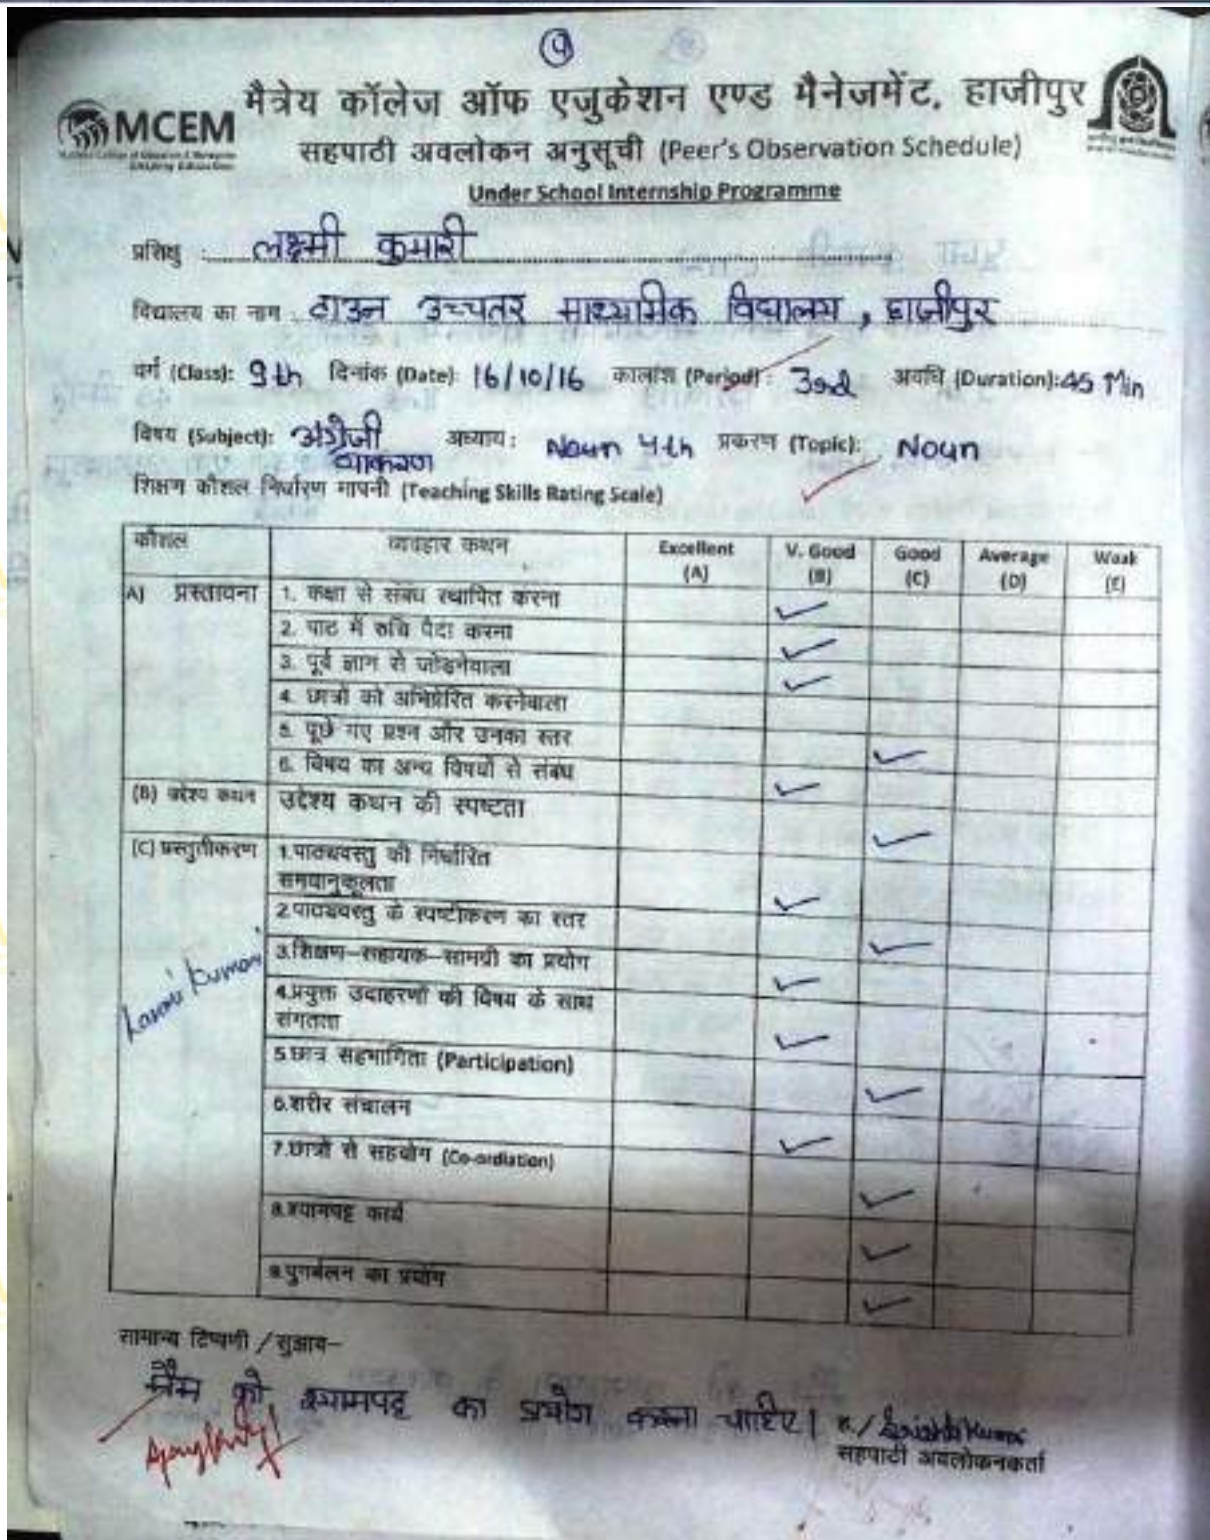 4
मैत्रेय कॉलेज ऑफ एजुकेशन एण्ड मैनेजमेंट, हाजीपुर
MCEM
सहपाठी अवलोकन अनुसूची (Peer's Observation Schedule)
Under School Internship Programme
प्रशिक्षु : लक्ष्मी कुमारी
विद्यालय का नाम : टाउन उच्चतर माध्यमिक विद्यालय, हाजीपुर
वर्ग (Class): 9th दिनांक (Date): 16/10/16 कालांश (Period) : 3rd अवधि (Duration): 45 Min
विषय (Subject): अंग्रेजी व्याकरण अध्याय : Noun 4th प्रकरण (Topic): Noun
शिक्षण कौशल निर्धारण मापनी (Teaching Skills Rating Scale)
कौशल व्यवहार कथन Excellent (A) V. Good (B) Good (C) Average (D) Weak (E)
A) प्रस्तावना 1. कक्षा से संबंध स्थापित करना ✓
2. पाठ में रुचि पैदा करना ✓
3. पूर्व ज्ञान से जोड़नेवाला ✓
4. छात्रों को अभिप्रेरित करनेवाला
5. पूछे गए प्रश्न और उनका स्तर ✓
6. विषय का अन्य विषयों से संबंध ✓
(B) उद्देश्य कथन उद्देश्य कथन की स्पष्टता ✓
(C) प्रस्तुतीकरण 1.पाठ्यवस्तु की निर्धारित
समयानुकूलता ✓
2.पाठ्यवस्तु के स्पष्टीकरण का स्तर ✓
3.शिक्षण–सहायक–सामग्री का प्रयोग ✓
4.प्रयुक्त उदाहरणों की विषय के साथ
संगतता ✓
5.छात्र सहभागिता (Participation) ✓
6.शरीर संचालन ✓
7.छात्रों से सहयोग (Co-ordiation) ✓
8.श्यामपट्ट कार्य ✓
9.पुनर्बलन का प्रयोग ✓
Kumari
सामान्य टिप्पणी / सुझाव–
मैम को श्यामपट्ट का प्रयोग करना चाहिए।
सहपाठी अवलोकनकर्ता